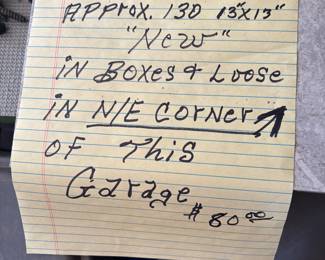 Approx. 130 13"x13"
"New"
in Boxes & Loose
in N/E Corner
of This
Garage
$ 80.00